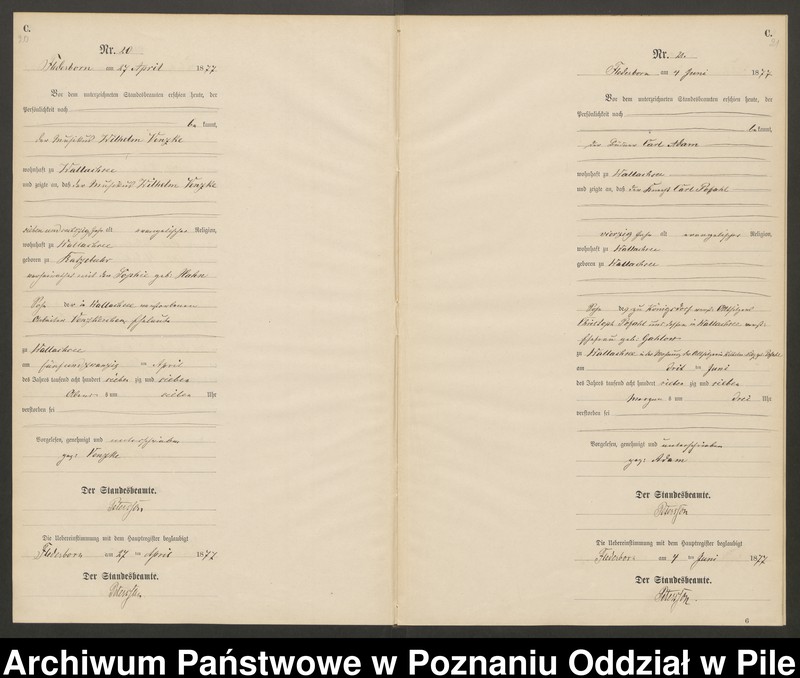 C.
Nr. 20
Flederborn am 27 April 1877
Vor dem unterzeichneten Standesbeamten erschien heute, der
Persönlichkeit nach
be kannt,
der Musikus Wilhelm Venzke
wohnhaft zu Wallachsee
und zeigte an, daß der Musikus Wilhelm Venzke
alt evangelischer Religion,
wohnhaft zu Wallachsee
geboren zu Ratzebuhr
verheirathet mit der Sophie geb. Hahn
Sohn der in Wallachsee verstorbenen
Arbeiter Venzkeschen Eheleute
zu Wallachsee
am fünfundzwanzig ten April
des Jahres tausend acht hundert sieben zig und sieben
Abends um sieben Uhr
verstorben sei
Vorgelesen, genehmigt und unterschrieben
gez. Venzke
Der Standesbeamte.
Petersson
Die Uebereinstimmung mit dem Hauptregister beglaubigt
Flederborn am 27 ten April 1877
Der Standesbeamte.
Petersson
C.
21
Nr. 21.
Flederborn am 4 Juni 1877
Vor dem unterzeichneten Standesbeamten erschien heute, der
Persönlichkeit nach
be kannt,
der Bauer Carl Adam
wohnhaft zu Wallachsee
und zeigte an, daß der Knecht Carl Posahl
vierzig Jahr alt evangelischer Religion,
wohnhaft zu Wallachsee
geboren zu Wallachsee
Sohn des zu Königsdorf verst. Altsitzers
Christoph Posahl und dessen in Wallachsee verst.
Ehefrau geb. Gahlow
zu Wallachsee in der Wohnung des
am drit ten Juni
des Jahres tausend acht hundert sieben zig und sieben
Morgens um drei Uhr
verstorben sei
Vorgelesen, genehmigt und unterschrieben
gez. Adam
Der Standesbeamte.
Petersson
Die Uebereinstimmung mit dem Hauptregister beglaubigt
Flederborn am 4 ten Juni 1877
Der Standesbeamte.
Petersson
6
Archiwum Państwowe w Poznaniu Oddział w Pile